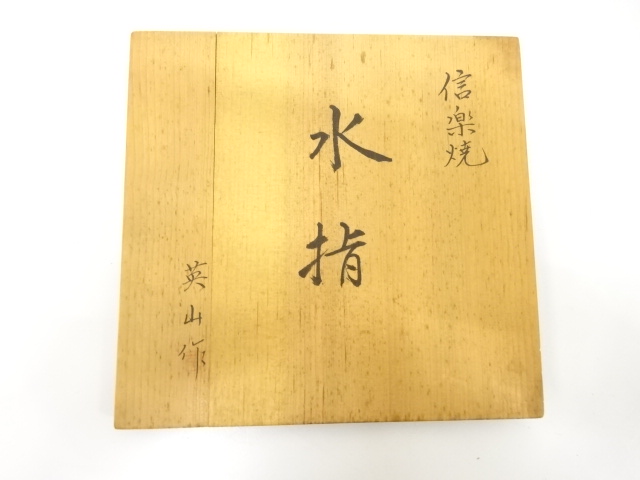 信楽焼
水指
英山作